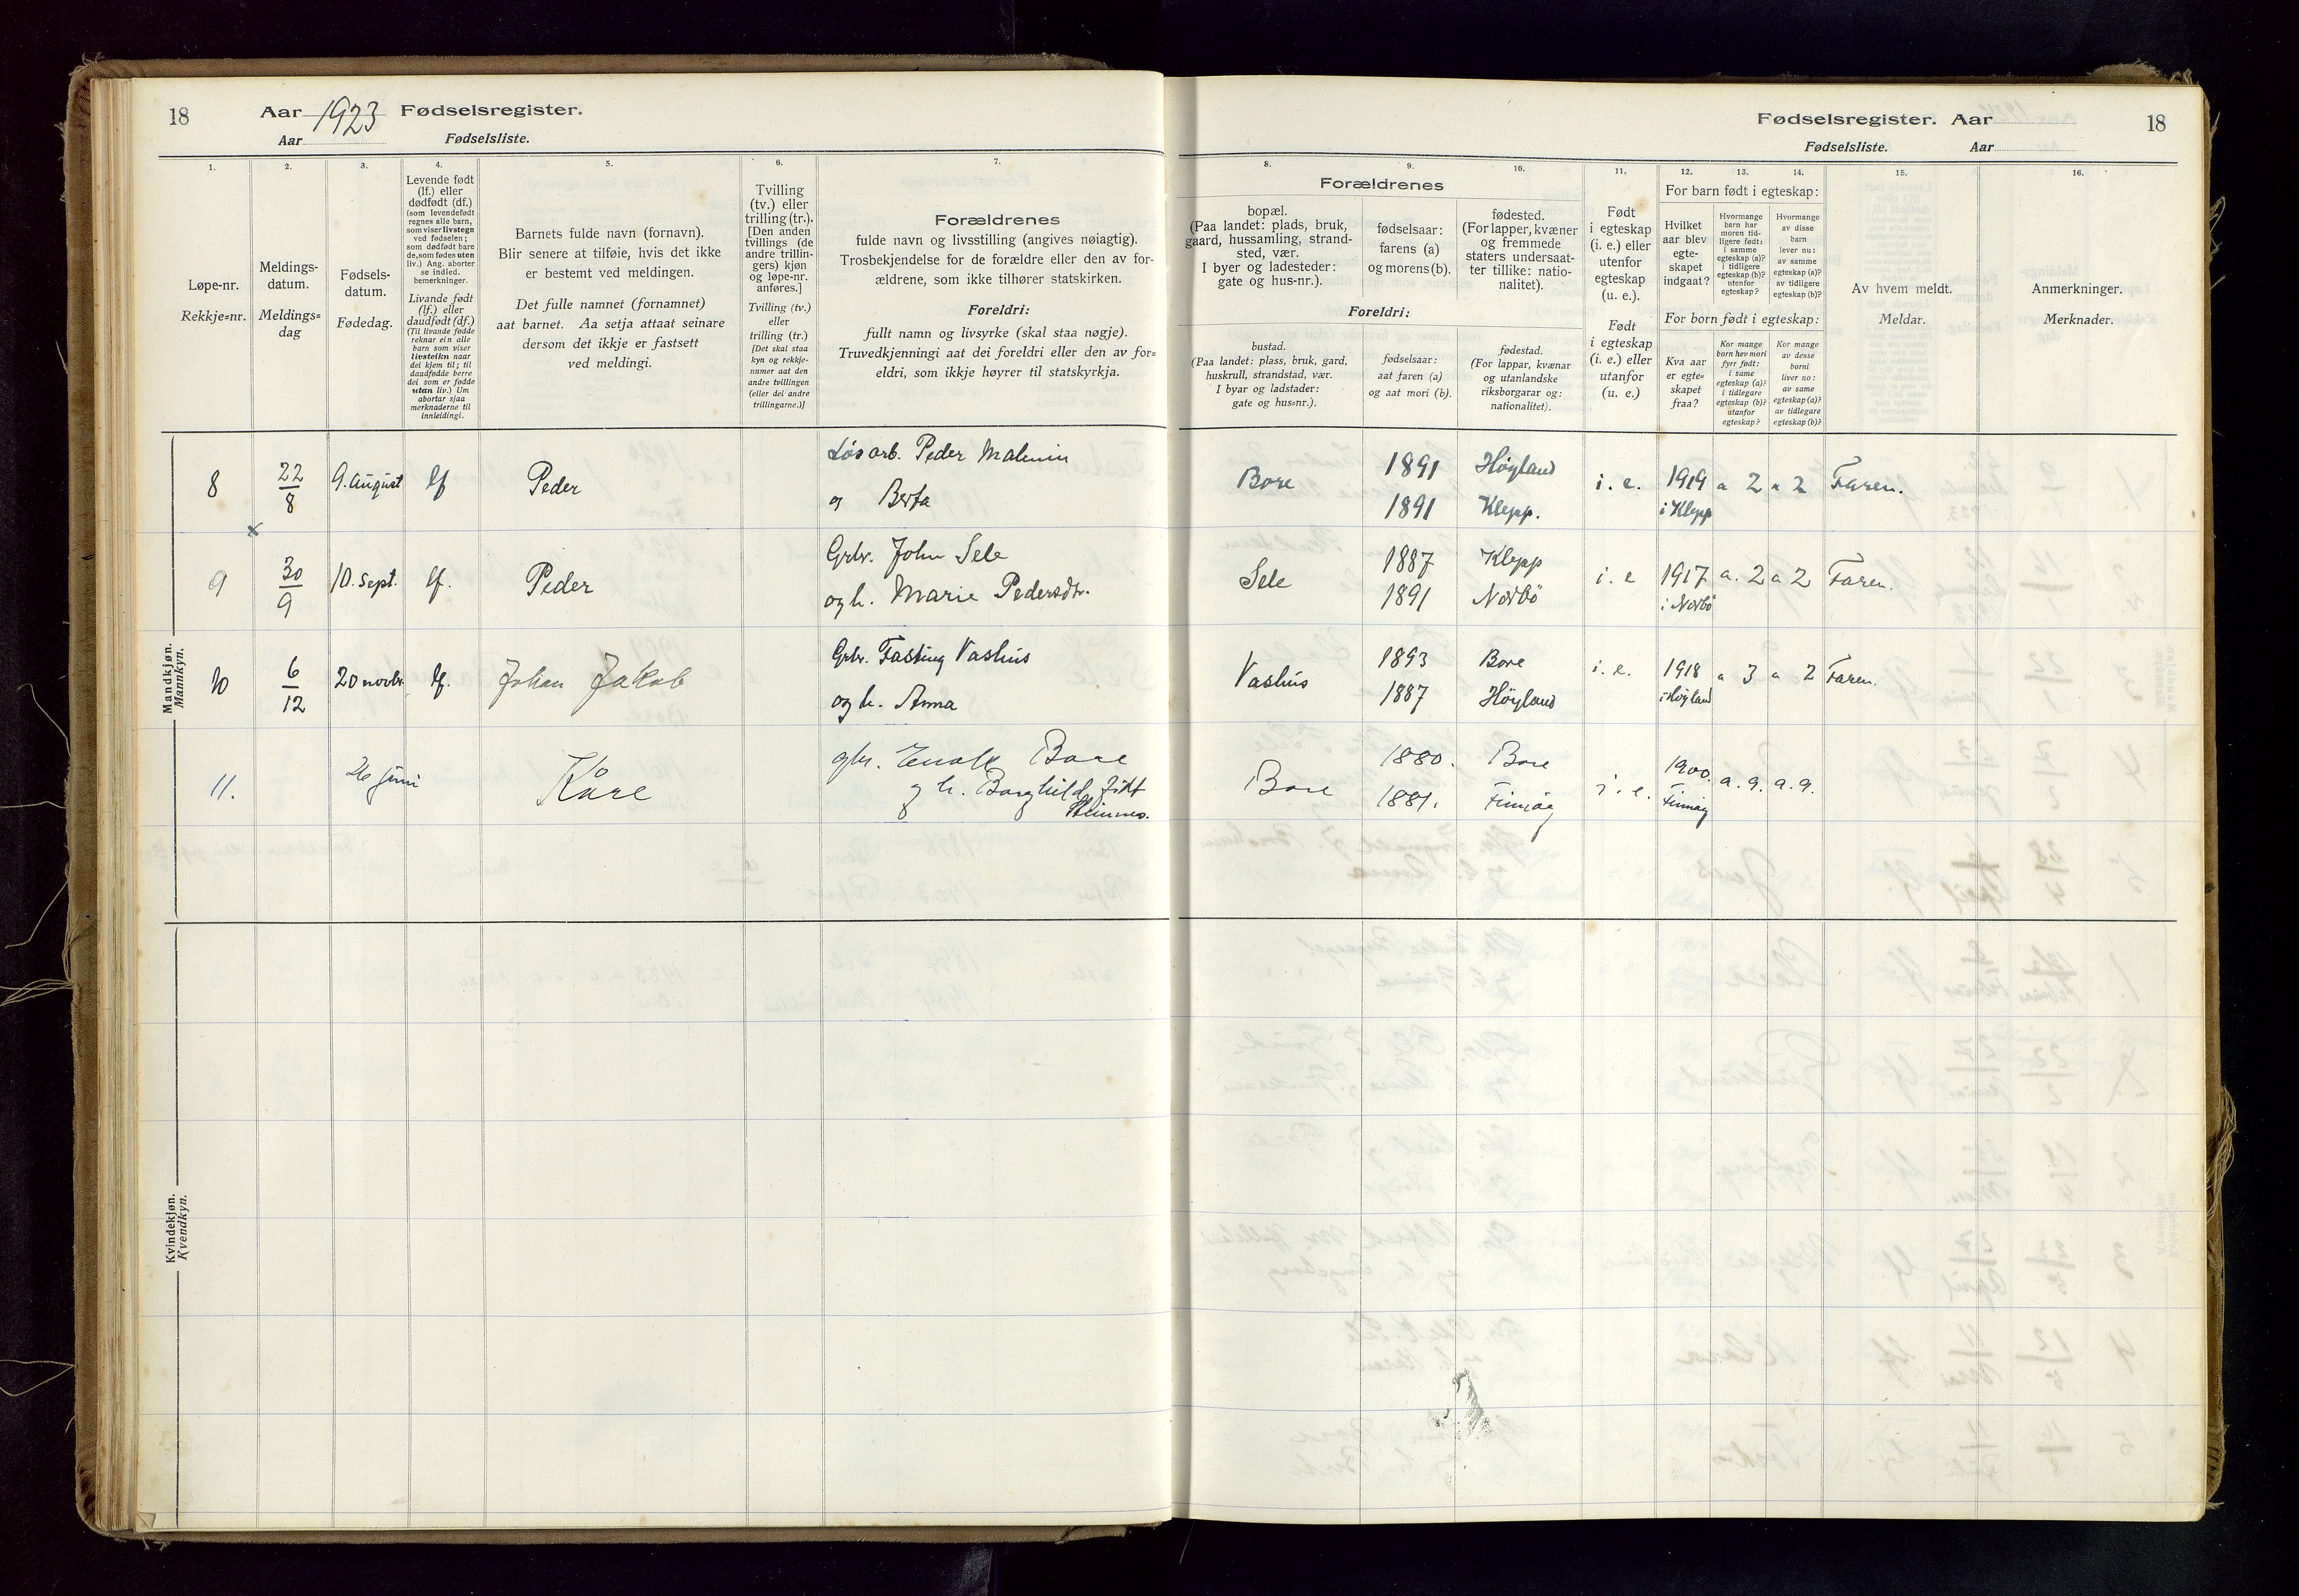 18
Aar 1923 Fødselsregister.
Aar Fødselsliste.
1.
2.
3.
4.
5.
6.
7.
Løpe-nr.
Rekkje=nr.
Meldings-
datum.
Meldings=
dag
Fødsels-
datum.
Fødedag.
Levende født
(lf.) eller
dødfødt (df.)
(som levendefødt
regnes alle barn,
som viser livstegn
ved fødselen;
som dødfødt bare
de, som fødes uten
liv.) Ang. aborter
se indled.
bemerkninger.
Livande født
(lf.) eller
daudfødt (df.)
(Til livande fødde
reknar ein alle
barn som viser
livsteikn naar
dei kjem til; til
daudfødde berre
dei som er fødde
utan liv.) Um
abortar sjaa
merknaderne til
innleidingi.
Barnets fulde navn (fornavn).
Blir senere at tilføie, hvis det ikke
er bestemt ved meldingen.
Det fulle namnet (fornamnet)
aat barnet. Aa setja attaat seinare
dersom det ikkje er fastsett
ved meldingi.
Tvilling
(tv.) eller
trilling (tr.).
[Den anden
tvillings (de
andre trillin-
gers) kjøn
og løpe-nr.
anføres.]
Tvilling (tv.)
eller
trilling (tr.)
[Det skal staa
kyn og rekkje-
numer aat den
andre tvillingen
(eller dei andre
trillingarne.)]
Forældrenes
fulde navn og livsstilling (angives nøiagtig).
Trosbekjendelse for de forældre eller den av for-
ældrene, som ikke tilhører statskirken.
Foreldri:
fullt namn og livsyrke (skal staa nøgje).
Truvedkjenningi aat dei foreldri eller den av for=
eldri, som ikkje høyrer til statskyrkja.
Mandkjøn.
Mannkyn.
8
22
8
9. august
lf
Peder
Løsarb. Peder Malmin
og Berta
x
9
30
9
10. sept.
lf.
Peder
Grbr. John Sele
og h. Marie Pedersdtr.
10
6
12
20 novbr.
lf.
Johan Jakob
Grbr. Fasting Vashus
og h. Anna
11.
26 juni
Kåre
gbr. Enok Bore
og h. Borghild født
Kvindekjøn.
Kvendkyn.
Fødselsregister. Aar
18
Fødselsliste. Aar
8.
9.
10.
11.
12.
13.
14.
15.
16.
Forældrenes
bopæl.
(Paa landet: plads, bruk,
gaard, hussamling, strand-
sted, vær.
I byer og ladesteder:
gate og hus-nr.).
fødselsaar:
farens (a)
og morens (b).
fødested.
(For lapper, kvæner
og fremmede
staters undersaat-
ter tillike: natio-
nalitet).
Foreldri:
bustad.
(Paa landet: plass, bruk, gard,
huskrull, strandstad, vær.
I byar og ladstader:
gate og hus=nr.).
fødselsaar:
aat faren (a)
og aat mori (b).
fødestad.
(For lappar, kvænar
og utanlandske
riksborgarar og:
nationalitet).
Født
i egteskap
(i. e.) eller
utenfor
egteskap
(u. e.).
Født
i egteskap
(i. e.) eller
utanfor
(u. e.)
For barn født i egteskap:
Hvilket
aar blev
egte-
skapet
indgaat?
Hvormange
barn har
moren tid-
ligere født:
i samme
egteskap (a)?
i tidligere
egteskap (b)?
utenfor
egteskap?
Hvormange
av disse
barn
lever nu:
av samme
egteskap (a)?
av tidligere
egteskap (b)?
For born født i egteskap:
Kva aar
er egte=
skapet
fraa?
Kor mange
born hev mori
fyrr født:
i same
egteskap (a)?
i tidlegare
egteskap (b)?
utanfor
egteskap?
Kor mange
av desse
borni
liver no:
av same
egteskap (a)?
av tidlegare
egteskap (b)?
Av hvem meldt.
Meldar.
Anmerkninger.
Merknader.
Bore
1891
1891
Høyland
Klepp.
i. e.
1919
i Klepp
a 2 a 2
Faren.
Sele
1887
1891
Klepp
Nærbø
i. e
1917
i Nærbø
a. 2 a 2
Faren.
Vashus
1893
1887
Bore
Høyland
i. e.
1918
i Høyland
a 3 a 2
Faren.
Bore
1880.
1881.
Bore
Finnøy
i. e.
1900.
Finnøy
a. 9. a. 9.